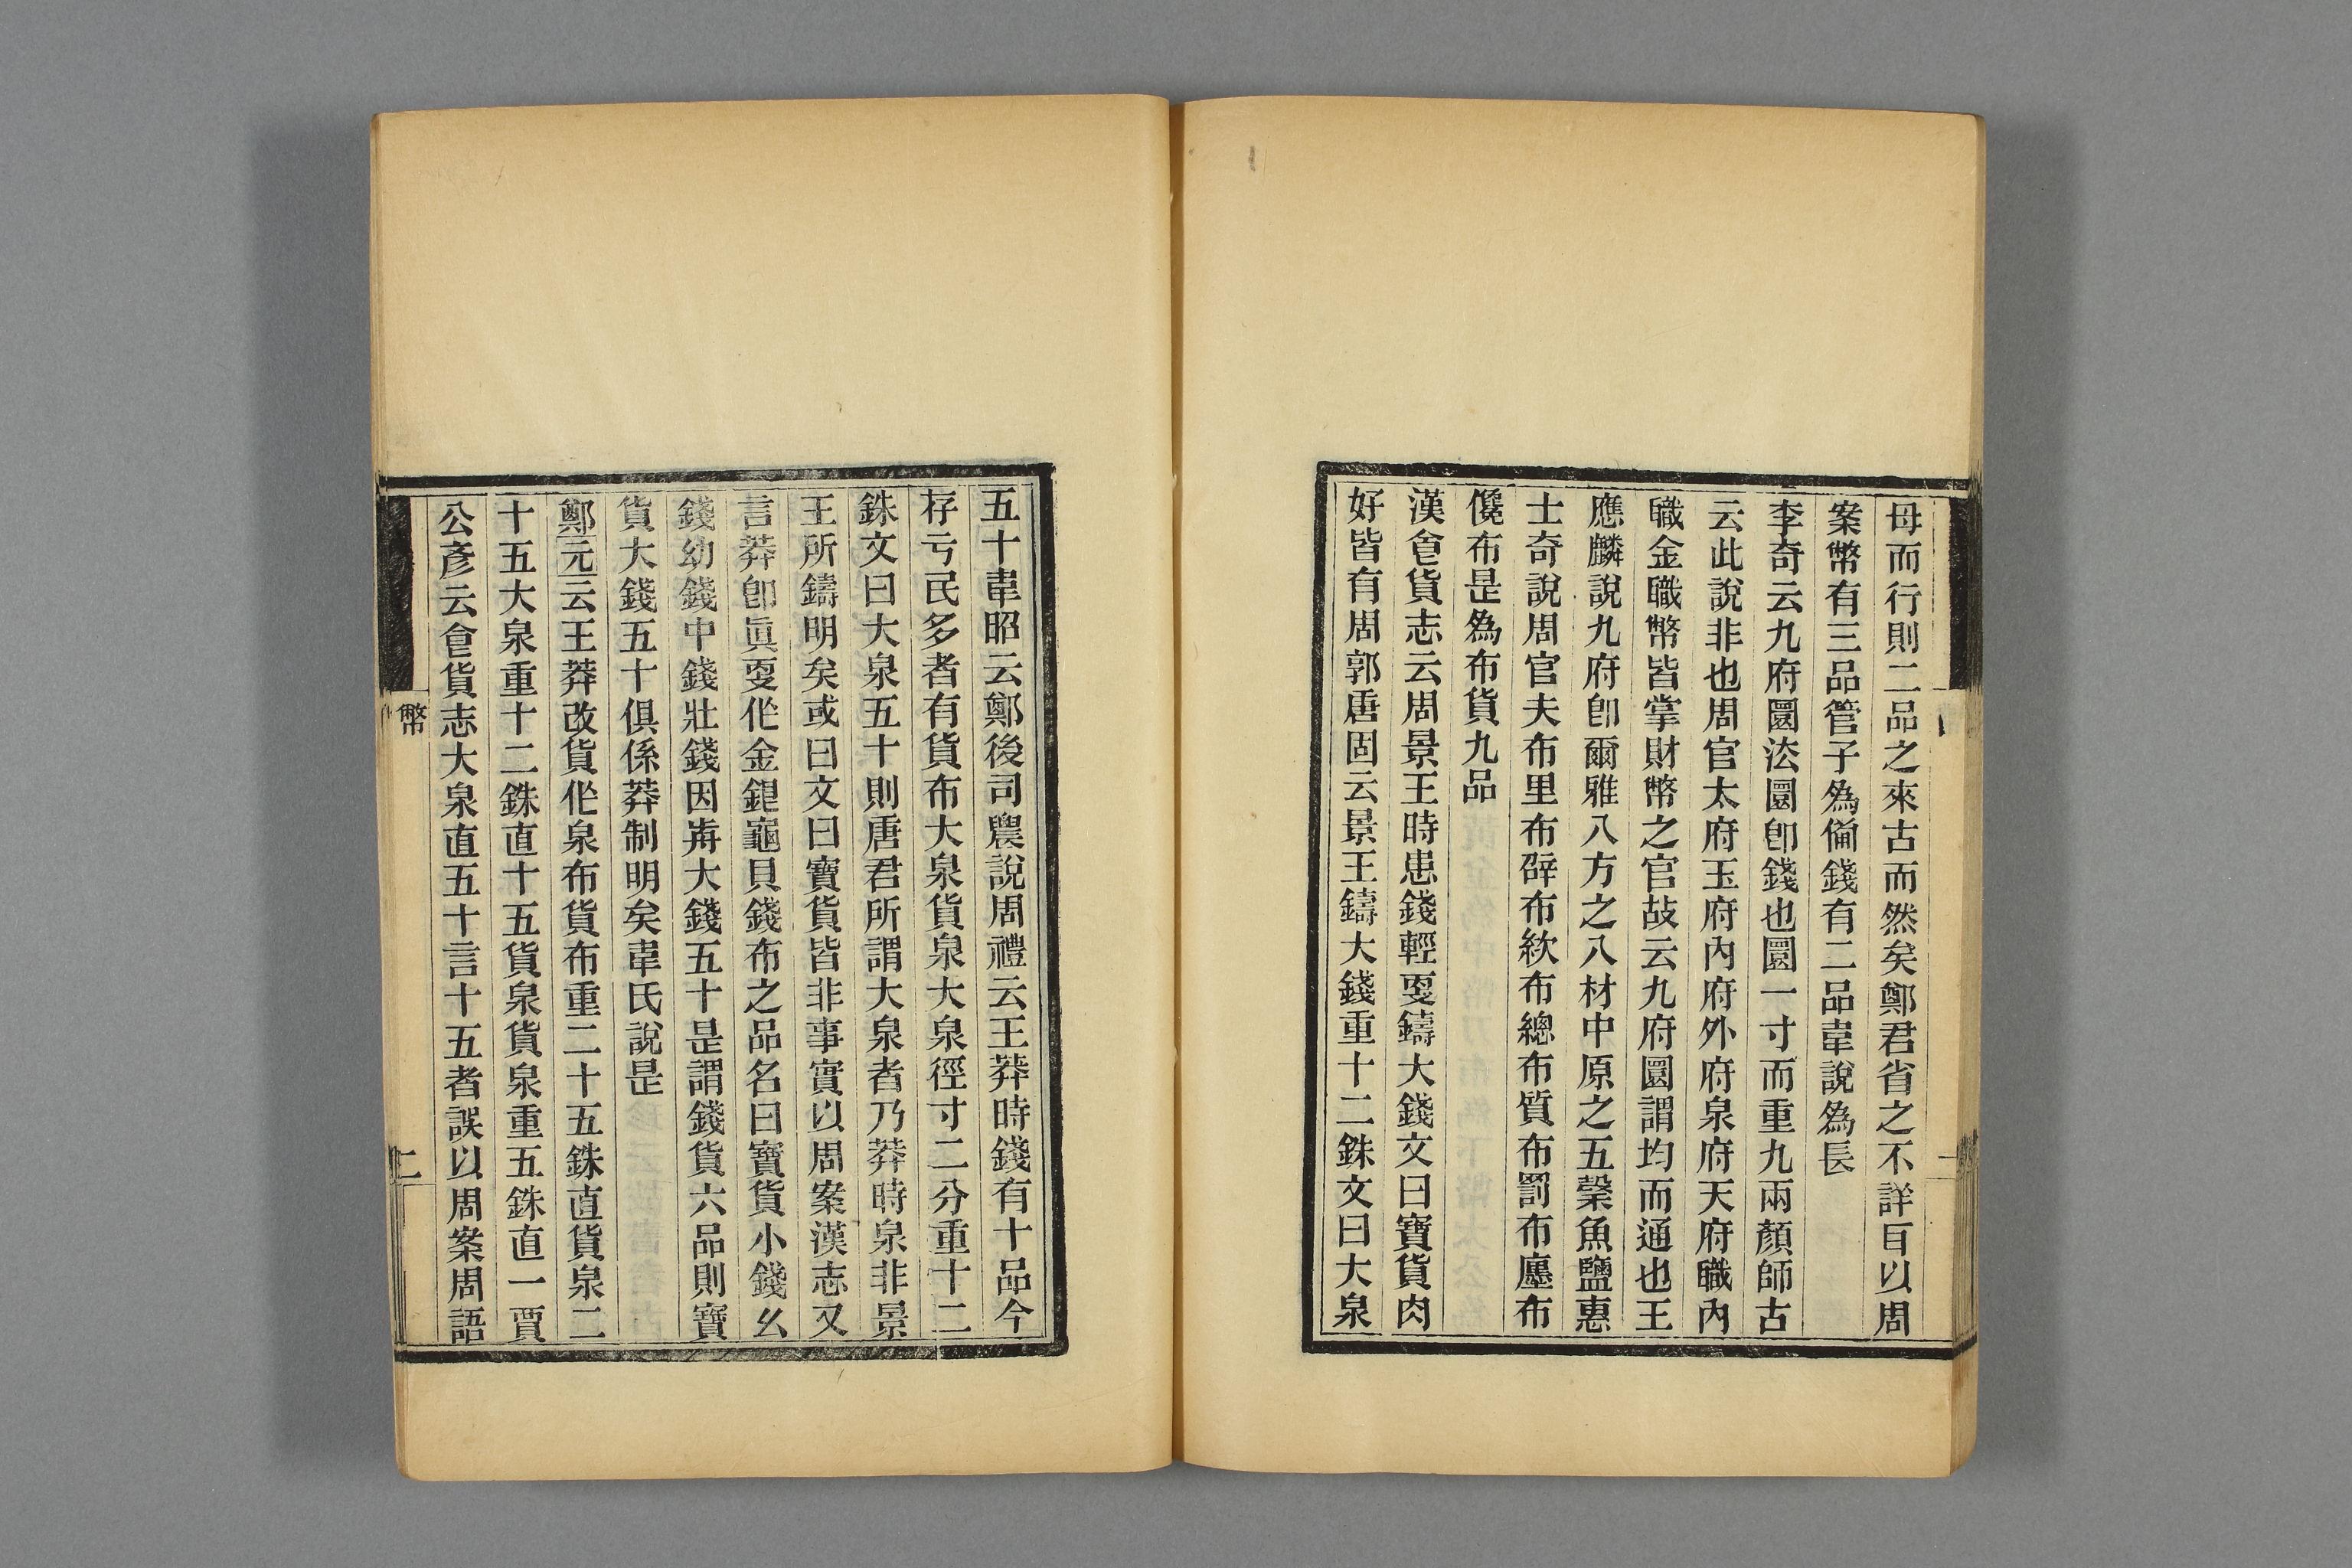 母而行則二品之來古而然矣鄭君省之不詳㠯以周
案幣有三品管子為偹錢有二品韋說為長
李奇云九府圜法圜卽錢也圜一寸而重九兩顏師古
云此說非也周官太府玉府內府外府泉府天府職內
職金職幣皆掌財幣之官故云九府圜謂均而通也王
應麟說九府卽爾雅八方之八材中原之五榖魚鹽惠
士奇說周官夫布里布辟布絘布總布質布罰布廛布
儳布是為布貨九品
漢㑹貨志云周景王時患錢輕㪅鑄大錢文曰寶貨肉
好皆有周郭唐固云景王鑄大錢重十二銖文曰大泉
五十韋昭云鄭後司農說周禮云王莽時錢有十品今
存亏民多者有貨布大泉貨泉大泉徑寸二分重十二
銖文曰大泉五十則唐君所謂大泉者乃莽時泉非景
王所鑄明矣或曰文曰寶貨皆非事實以周案漢志又
言莽卽眞㪅作金銀龜貝錢布之品名曰寶貨小錢幺
錢幼錢中錢壯錢因歬大錢五十是謂錢貨六品則寶
貨大錢五十俱係莽制明矣韋氏說是
鄭元云王莽改貨作泉布貨布重二十五銖直貨泉二
十五大泉重十二銖直十五貨泉貨泉重五銖直一賈
公彥云㑹貨志大泉直五十言十五者誤以周案周語
幣
二